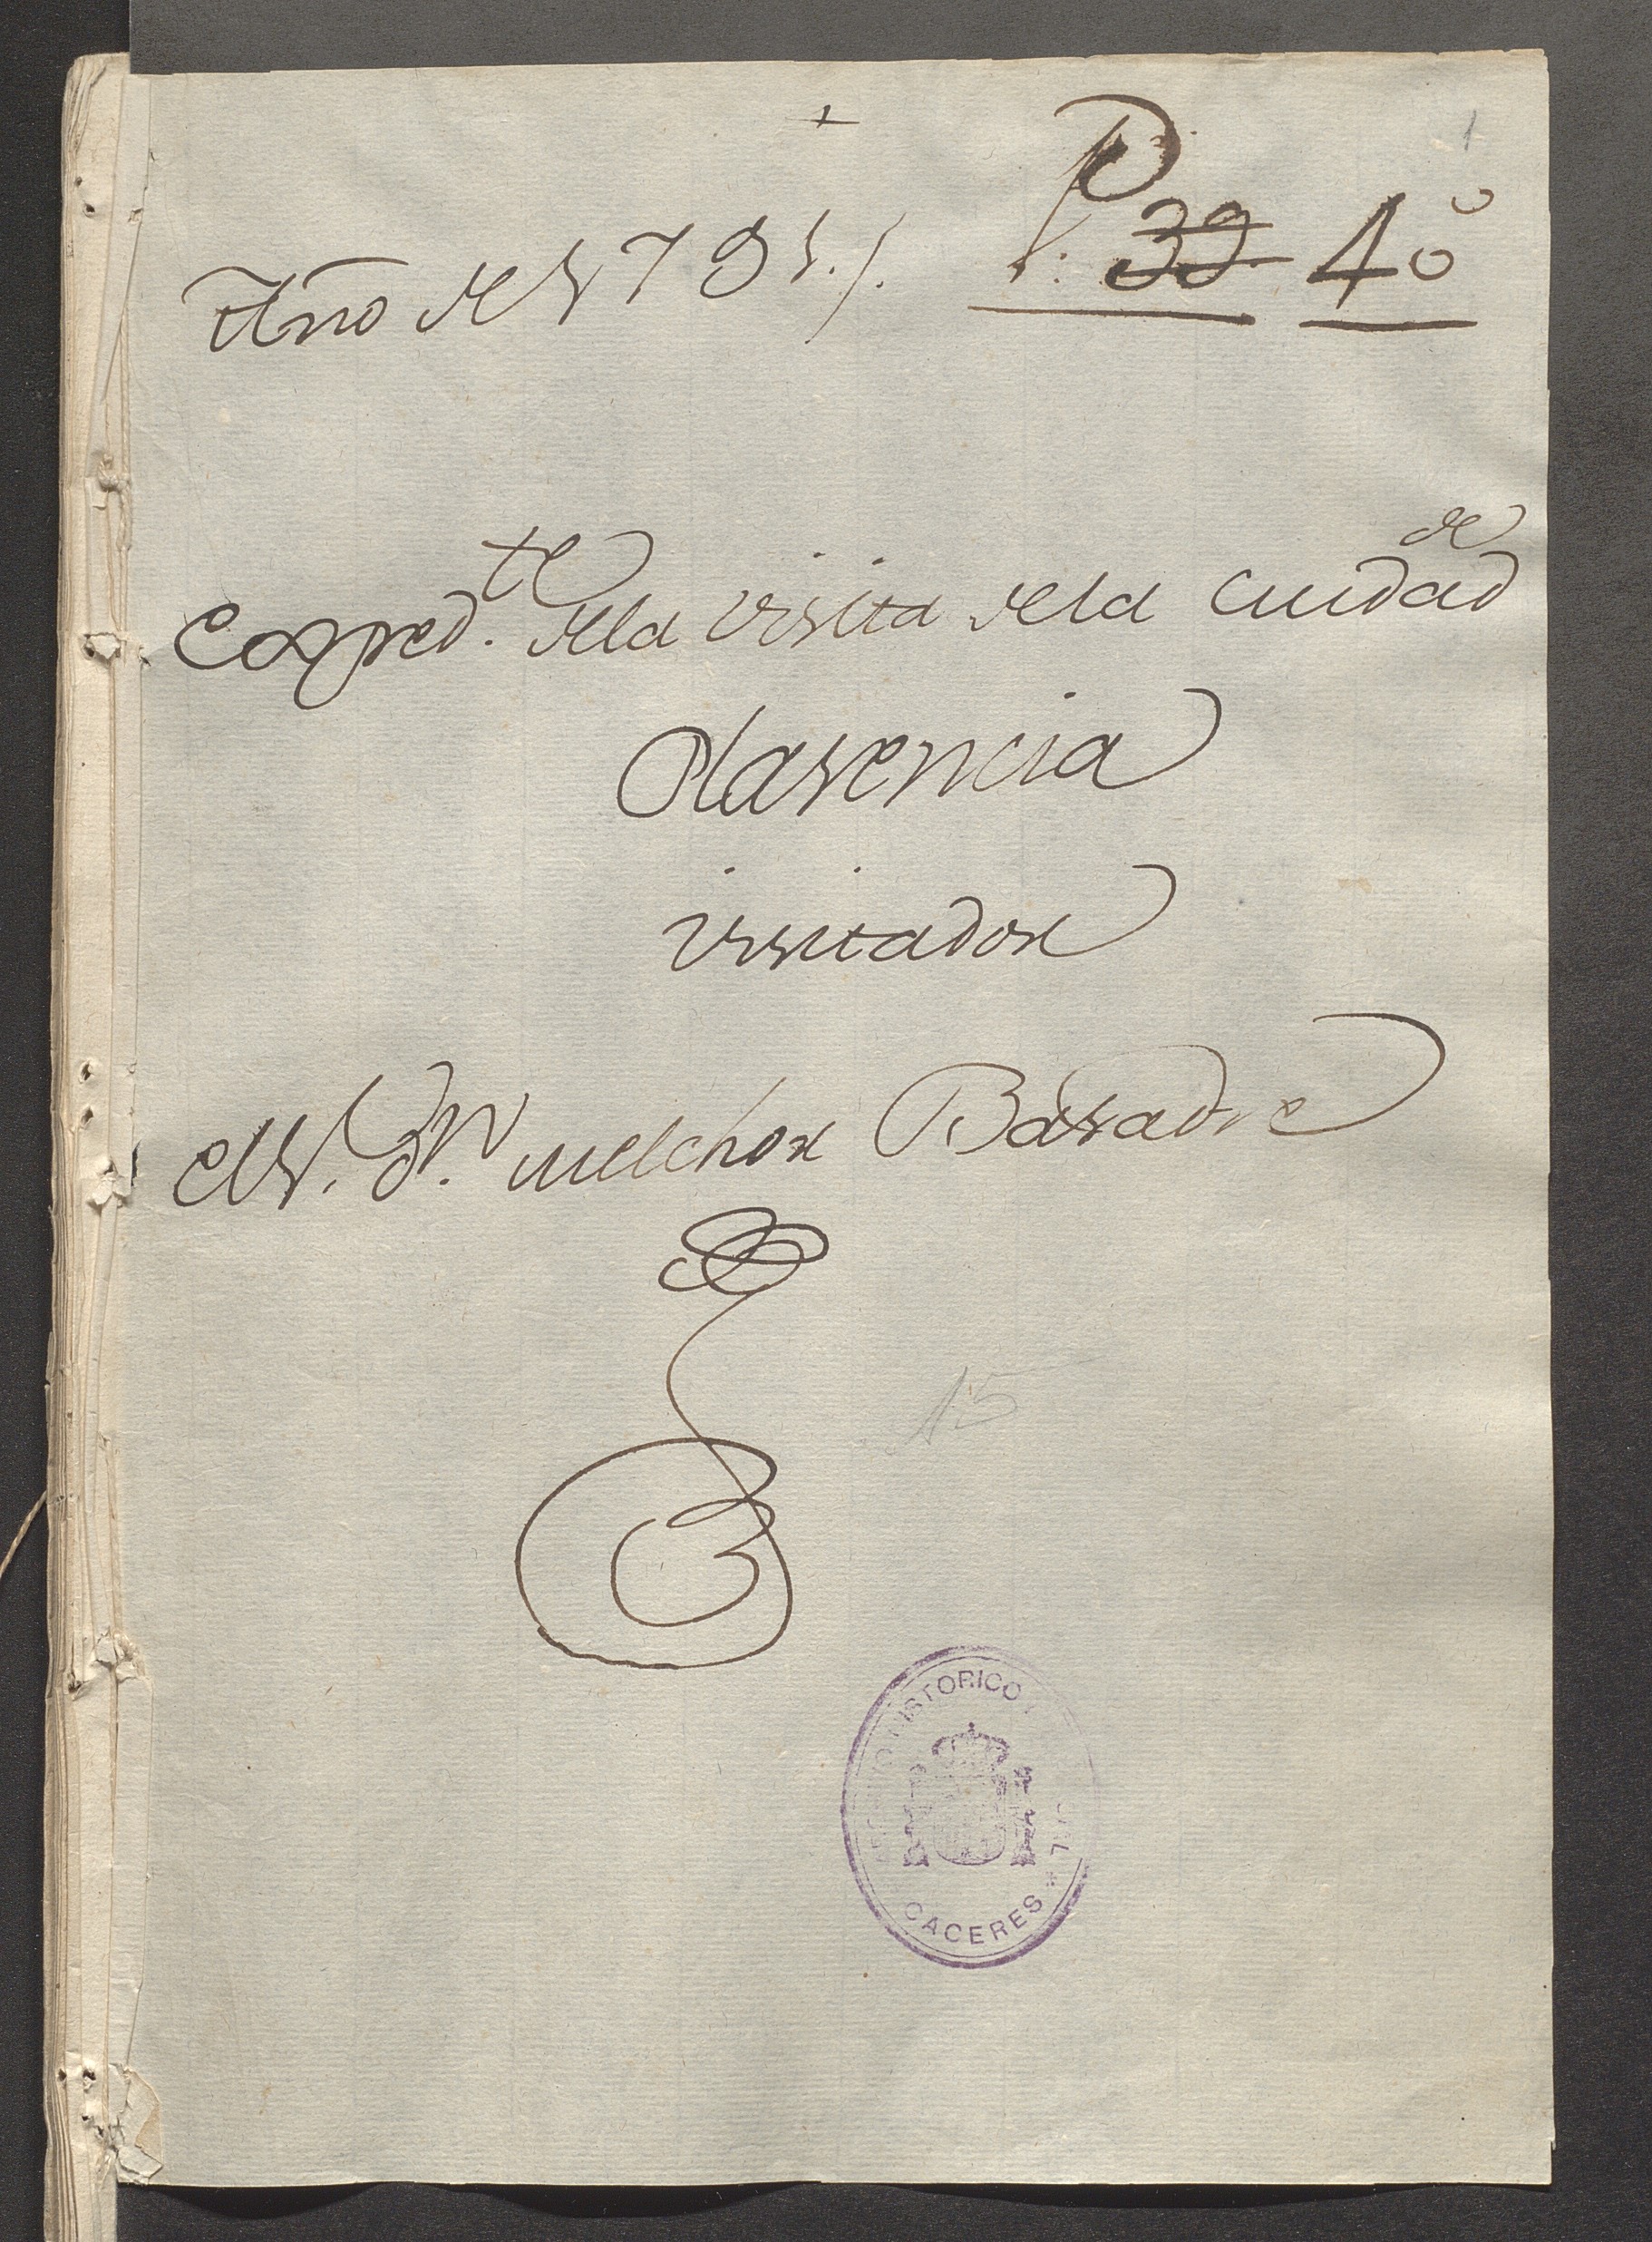 1
Año de 1791./. P. 39 4º
Exped.te de la visita de la Ciudad de
Plasencia
Visitador
el S. D.n Melchor Basadre
15
HISTORICO
CACERES *